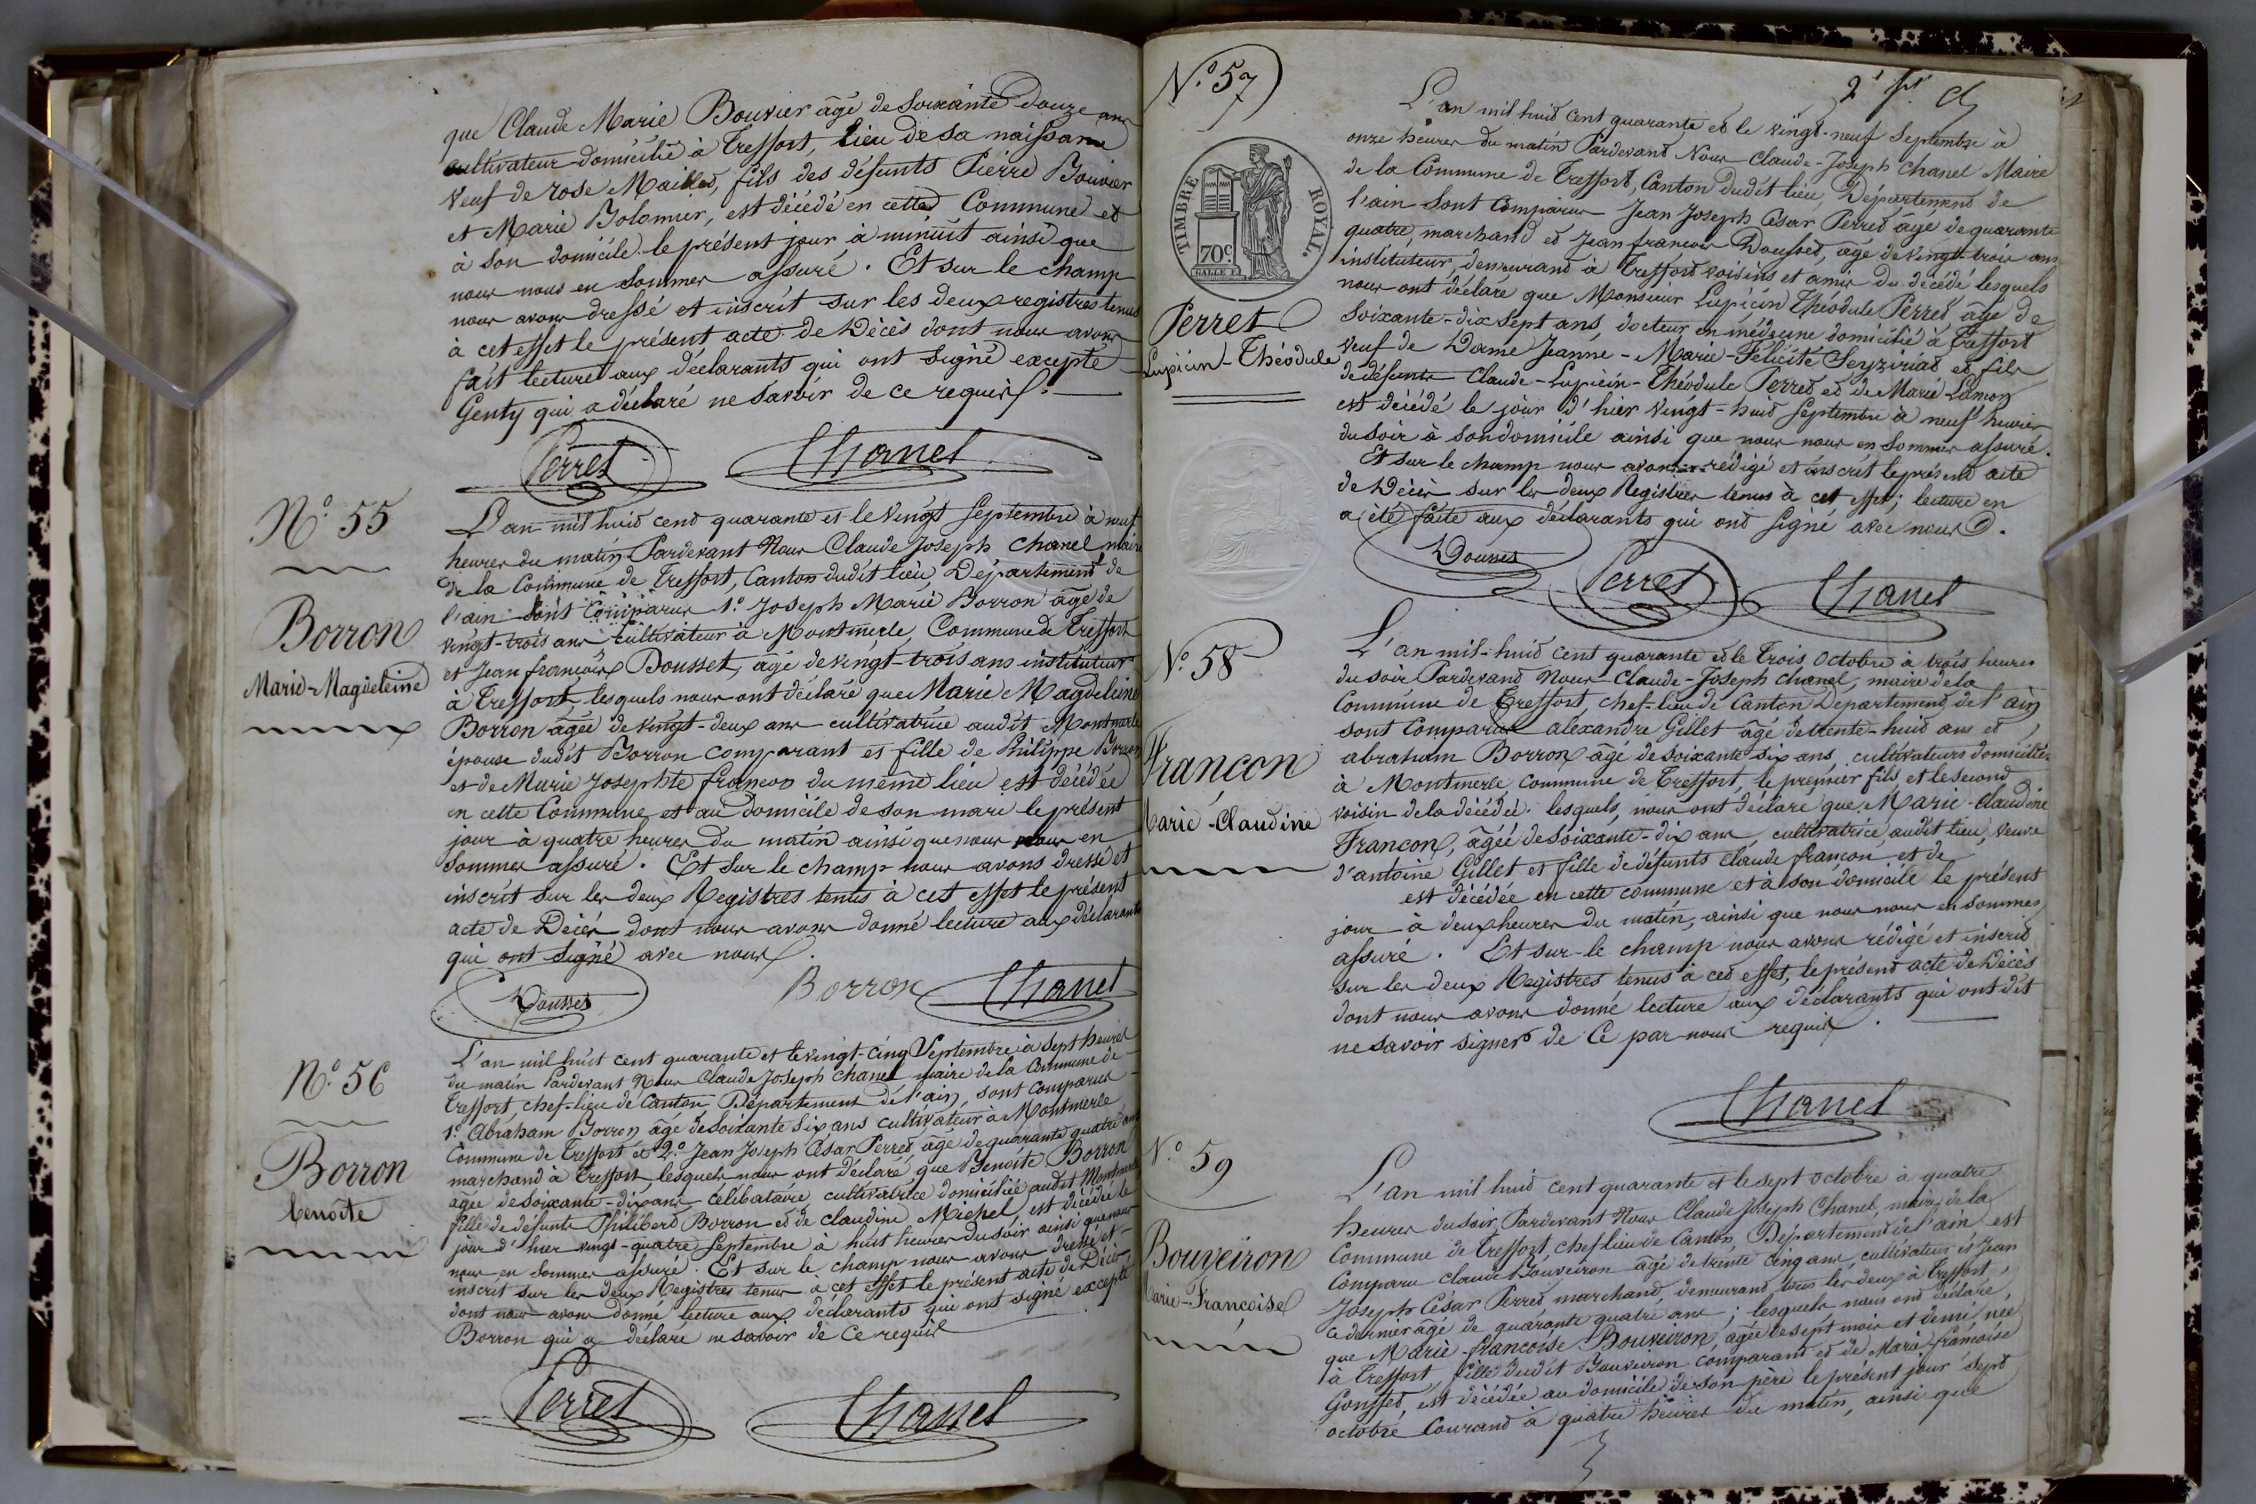 que Claude Marie Bouvier âgé de Soixante Douze ans
cultivateur domicilié à Treffort, lieu de sa naissance
veuf de rose Maillet, fils des défunts Pierre Bouvier
et Marie Bolomier, est décédé en cette Commune et
à son domicile le présent jour à minuit ainsi que
nous nous en sommes assuré. Et sur le champ
nous avons dressé et inscrit sur les deux registres tenus
à cet effet le présent acte de Décès dont nous avons
fait lecture aux déclarants qui ont signé excepté
Genty qui a déclaré ne savoir de ce requis.
Perret Chanel
N.° 55
Borron
Marie-Magdeleine
L'an mil huit cent quarante et le vingt Septembre à neuf
heures du matin Pardevant Nous Claude Joseph Chanel maire
de la Commune de Treffort, Canton dudit lieu, Département de
l'ain sont Comparus 1.° Joseph Marie Borron âgé de
vingt-trois ans cultivateur à Montmerle, Commune de Treffort
et Jean françois Dousset, âgé de vingt-trois ans instituteur
à Treffort, lesquels nous ont déclaré que Marie Magdeleine
Borron âgée de vingt-deux ans cultivatrice audit Montmerle
épouse dudit Borron comparant et fille de Philippe Borron
et de Marie Josephte françon du même lieu est décédée
en cette Commune et au domicile de son mari le présent
jour à quatre heures du matin ainsi que nous nous en
sommes assuré. Et sur le champ nous avons dressé et
inscrit sur les deux Registres tenus à cet effet le présent
acte de Décès dont nous avons donné lecture aux déclarants
qui ont signé avec nous.
Dousset Borron Chanel
N.° 56
Borron
benoîte
L'an mil huit cent quarante et le vingt-cinq Septembre à Sept heures
du matin Pardevant Nous Claude Joseph Chanel maire de la Commune de
Treffort, chef-lieu de Canton, Département de l'ain, sont comparus
1.° Abraham Borron âgé de soixante six ans cultivateur à Montmerle
Commune de Treffort et 2.° Jean Joseph César Perret, âgé de quarante quatre ans
marchand à Treffort, lesquels nous ont déclaré que Benoîte Borron
âgée de soixante-dix ans, célibataire cultivatrice domiciliée audit Montmerle
fille de defunts Philibert Borron et de claudine Michel, est décédée le
jour d'hier vingt-quatre Septembre à huit heures du soir ainsi que nous
nous en sommes assuré. Et sur le champ nous avons dressé et
inscrit sur les deux Registres tenus à cet effet le présent acte de Décès
dont nous avons donné lecture aux déclarants qui ont signé excepté
Borron qui a déclaré ne savoir de ce requis
Perret Chanel
N.° 57
TIMBRE ROYAL.
70c.
Perret
Lupicin-Théodule
L'an mil huit cent quarante et le vingt-neuf Septembre à
onze heures du matin Pardevant Nous Claude-Joseph Chanel Maire
de la Commune de Treffort, Canton dudit lieu, Département de
l'ain sont Comparus Jean Joseph César Perret âgé de quarante
quatre, marchand et Jean françois Dousset, âgé de vingt-trois ans
instituteur, demeurant à Treffort voisins et amis du décédé lesquels
nous ont déclaré que Monsieur Lupicin Théodule Perret âgé de
soixante-dix sept ans, docteur en médecine domicilié à Treffort
veuf de Dame Jeanne-Marie-Félicité Seyziriat et fils
de défunts Claude-Lupicin-Théodule Perret et de Marie Lamon
est décédé le jour d'hier vingt-huit Septembre à neuf heures
du soir à son domicile ainsi que nous nous en sommes assuré.
Et sur le champ nous avons rédigé et inscrit le présent acte
de Décès sur les deux Registres tenus à cet effet; lecture en
a été faite aux déclarants qui ont signé avec nous.
Dousset Perret Chanel
N.° 58
Françon
Marie-Claudine
L'an mil-huit cent quarante et le trois Octobre à trois heures
du soir Pardevant Nous Claude-Joseph Chanel, maire de la
Commune de Treffort, chef-lieu de Canton Département de l'ain
sont Comparus alexandre Gillet âgé de trente-huit ans et
abraham Borron âgé de soixante six ans, cultivateurs domiciliés
à Montmerle, commune de Treffort, le premier fils et le second
voisin de la décédée. lesquels, nous ont déclaré que Marie-Claudine
Françon, âgée de soixante-dix ans, cultivatrice, audit lieu, veuve
d'antoine Gillet et fille de défunts claude françon et de
est décédée en cette commune et à son domicile le présent
jour à deux heures du matin, ainsi que nous nous en sommes
assuré. Et sur-le champ nous avons rédigé et inscrit
sur les deux Registres tenus à cet effet, le présent acte de Décès
dont nous avons donné lecture aux déclarants qui ont dit
ne savoir signer de ce par nous requis.
Chanel
N.° 59
Bouveiron
Marie-Françoise
L'an mil huit cent quarante et le sept octobre à quatre
heures du soir, Pardevant Nous Claude Joseph Chanel, maire de la
Commune de Treffort, chef-lieu de Canton, Département de l'ain est
Comparu claude Bouveiron âgé de trente cinq ans, cultivateur et Jean
Joseph César Perret marchand, demeurant tous les deux à Treffort,
ce dernier âgé de quarante quatre ans; lesquels nous ont déclaré,
que Marie-françoise Bouveiron, âgée de sept mois et demi, née
à Treffort, fille dudit Bouveiron comparant et de Marie françoise
Gousset, est décédée au domicile de son père le présent jour sept
octobre Courant à quatre heures du matin, ainsi que